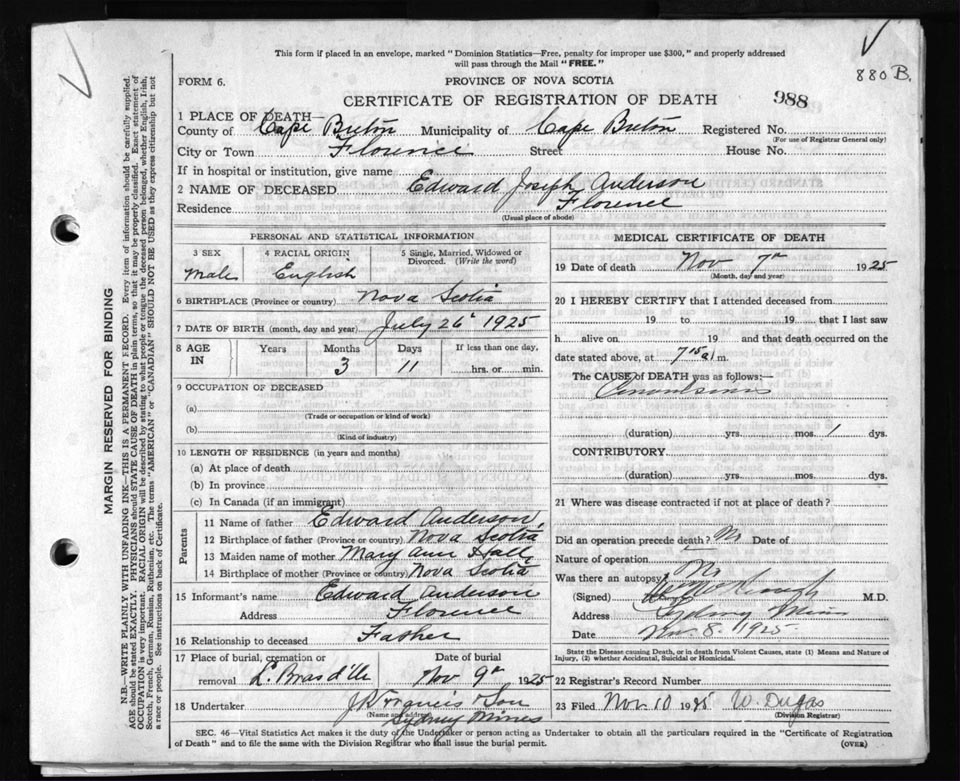 This form if placed in an envelope, marked "Dominion Statistics—Free, penalty for improper use $300," and properly addressed
will pass through the Mail "FREE."
880 B.
FORM 6.
PROVINCE OF NOVA SCOTIA
CERTIFICATE OF REGISTRATION OF DEATH
988
1 PLACE OF DEATH—
County of Cape Breton Municipality of Cape Breton Registered No.
(For use of Registrar General only)
City or Town Florence Street House No.
If in hospital or institution, give name
2 NAME OF DECEASED Edward Joseph Anderson
Residence Florence
(Usual place of abode)
PERSONAL AND STATISTICAL INFORMATION
3 SEX 4 RACIAL ORIGIN 5 Single, Married, Widowed or
Divorced. (Write the word)
Male English
6 BIRTHPLACE (Province or country) Nova Scotia
7 DATE OF BIRTH (month, day and year) July 26 1925
8 AGE IN Years Months Days If less than one day,
3 11 hrs. or min.
9 OCCUPATION OF DECEASED
(a)
(Trade or occupation or kind of work)
(b)
(Kind of industry)
10 LENGTH OF RESIDENCE (in years and months)
(a) At place of death
(b) In province
(c) In Canada (if an immigrant)
Parents
11 Name of father Edward Anderson
12 Birthplace of father (Province or country) Nova Scotia
13 Maiden name of mother Mary Ann Hall
14 Birthplace of mother (Province or country) Nova Scotia
15 Informant's name Edward Anderson
Address Florence
16 Relationship to deceased Father
17 Place of burial, cremation or Date of burial
removal L. Bras d'Or Nov 9th 1925
18 Undertaker J W Francis & Son
(Name and address)
Sydney Mines
MEDICAL CERTIFICATE OF DEATH
19 Date of death Nov 7th 1925
(Month, day and year)
20 I HEREBY CERTIFY that I attended deceased from
19 to 19 that I last saw
h alive on 19 and that death occurred on the
date stated above, at 7 15 a m.
The CAUSE of DEATH was as follows:—
Convulsions
(duration) yrs. mos. 1 dys.
CONTRIBUTORY
(duration) yrs. mos. dys.
21 Where was disease contracted if not at place of death?
Did an operation precede death? No Date of
Nature of operation
Was there an autopsy No
(Signed) M.D.
Address Sydney Mines
Date Nov. 8. 1925
State the Disease causing Death, or in death from Violent Causes, state (1) Means and Nature of
Injury, (2) whether Accidental, Suicidal or Homicidal.
22 Registrar's Record Number
23 Filed Nov 10 1925 W. Dugas
(Division Registrar)
SEC. 46—Vital Statistics Act makes it the duty of the Undertaker or person acting as Undertaker to obtain all the particulars required in the "Certificate of Registration
of Death" and to file the same with the Division Registrar who shall issue the burial permit.
(OVER)
MARGIN RESERVED FOR BINDING
N.B.—WRITE PLAINLY WITH UNFADING INK—THIS IS A PERMANENT RECORD. Every item of information should be carefully supplied.
AGE should be stated EXACTLY. PHYSICIANS should STATE CAUSE OF DEATH in plain terms, so that it may be properly classified. Exact statement of
OCCUPATION is very important. RACIAL ORIGIN will be described by stating to what people or tongue the deceased person belonged, whether English, Irish,
Scotch, French, German, Russian, Ruthenian, etc. The terms "AMERICAN" or "CANADIAN" SHOULD NOT BE USED as they express citizenship but not
a race or people. See instructions on back of Certificate.